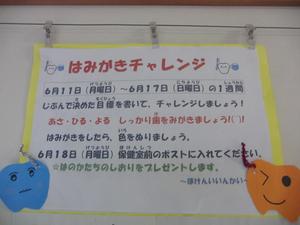 はみがきチャレンジ
6月11日(月曜日)~6月17日(日曜日)の1週間
じぶんで決めた目標を書いて、チャレンジしましょう!
あさ・ひる・よる しっかり歯をみがきましょう!(^)!
はみがきをしたら、色をぬりましょう。
6月18日(月曜日)保健室前のポストに入れてください。
☆はのかたちのしおりをプレゼントします。
~ほけんいいんかい~